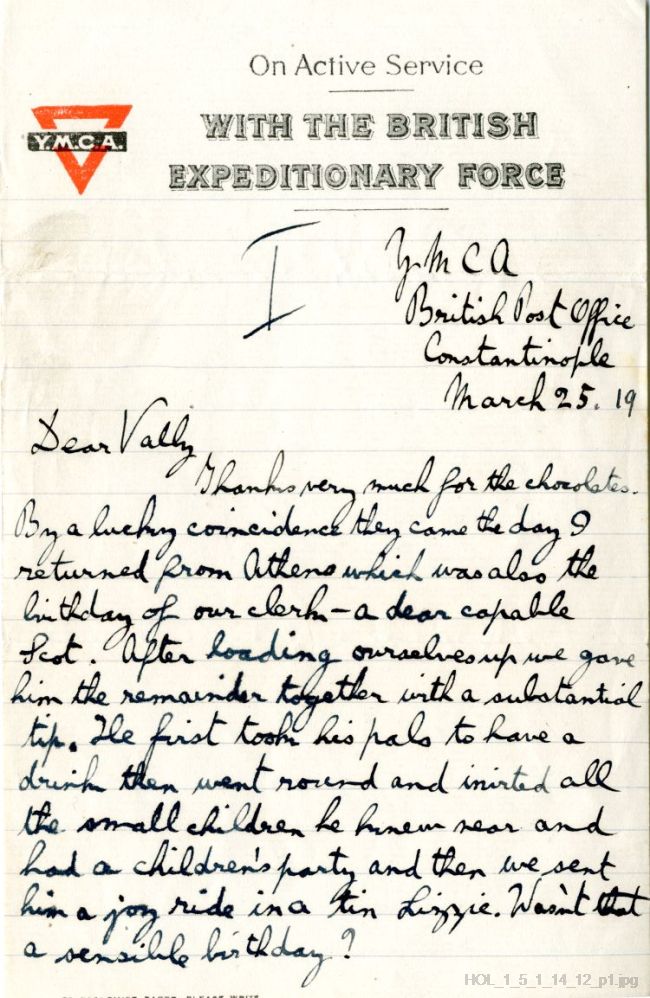 On Active Service
WITH THE BRITISH
EXPEDITIONARY FORCE
Y.M.C.A.
I
Y M C A
British Post Office
Constantinople
March 25. 19
Dear Vally
Thanks very much for the chocolates.
By a lucky coincidence they came the day I
returned from Athens which was also the
birthday of our clerk – a dear capable
Scot. After loading ourselves up we gave
him the remainder together with a substantial
tip. He first took his pals to have a
drink then went round and invited all
the small children he knew near and
had a children's party and then we sent
him a joy ride in a tin Lizzie. Wasn't that
a sensible birthday?
HOL_1_5_1_14_12_p1.jpg